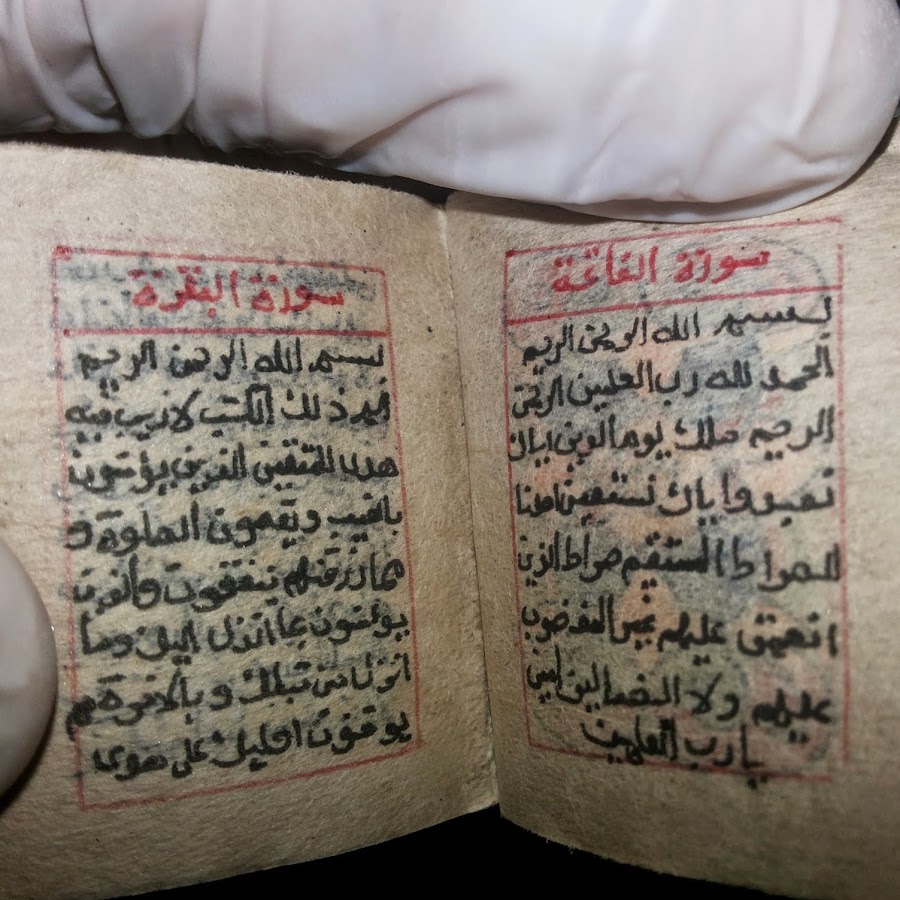 سورة الفاتحة
بسم الله الرحمن الرحيم
الحمد لله رب العلمين الرحمن
الرحيم ملك يوم الدين اياك
نعبد واياك نستعين اهدنا
الصراط المستقيم صراط الذين
انعمت عليهم غير المغضوب
عليهم ولا الضالين امين
يارب العلمين
سورة البقرة
بسم الله الرحمن الرحيم
الم ذلك الكتب لا ريب فيه
هدى للمتقين الذين يؤمنون
بالغيب ويقيمون الصلوة و
مما رزقنهم ينفقون والذين
يومنون بما انزل اليك وما
انزل من قبلك وبالاخرة هم
يوقنون اوليك على هدى